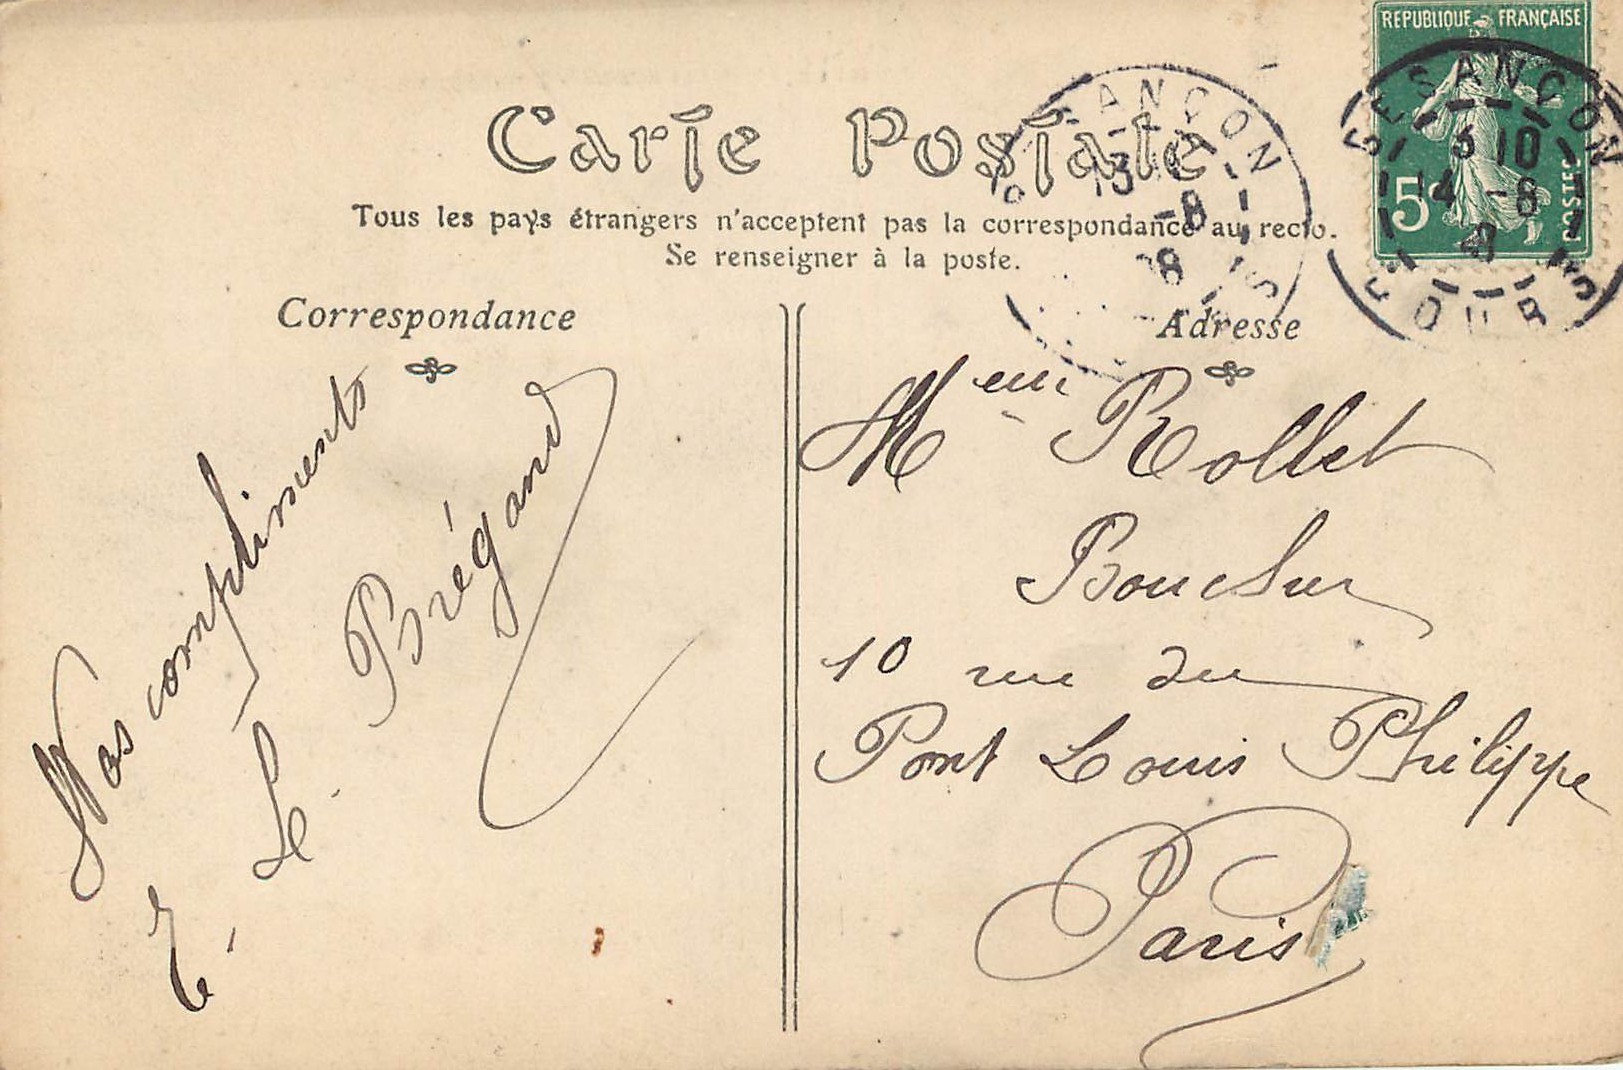 REPUBLIQUE FRANÇAISE
5c
POSTES
BESANÇON
3 10
14 -8
DOUBS
13
-8
08
Carte Postale
Tous les pays étrangers n'acceptent pas la correspondance au recto.
Se renseigner à la poste.
Correspondance
Nos compliments
E. Le Brégand
Adresse
Rollet
Boucher
10 rue du
Pont Louis Philippe
Paris